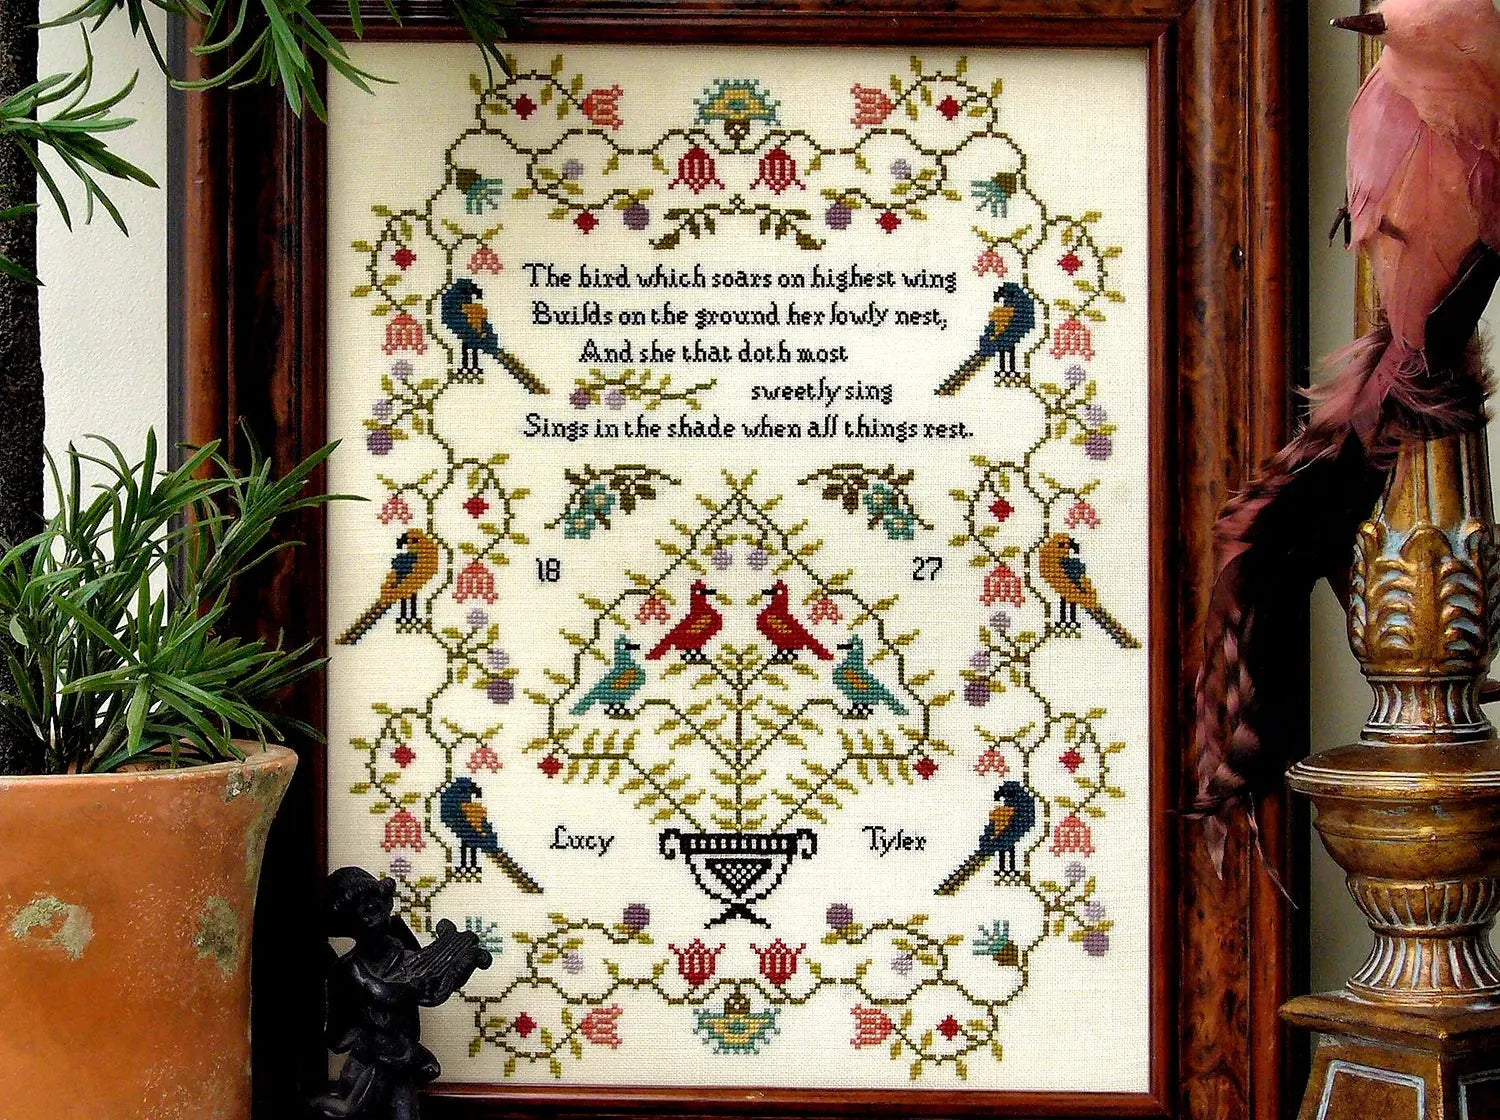 The bird which soars on highest wing
Builds on the ground her lowly nest,
And she that doth most
sweetly sing
Sings in the shade when all things rest.
18 27
Lucy Tyler